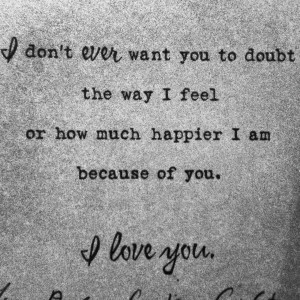 I don't ever want you to doubt
the way I feel
or how much happier I am
because of you.
I love you.